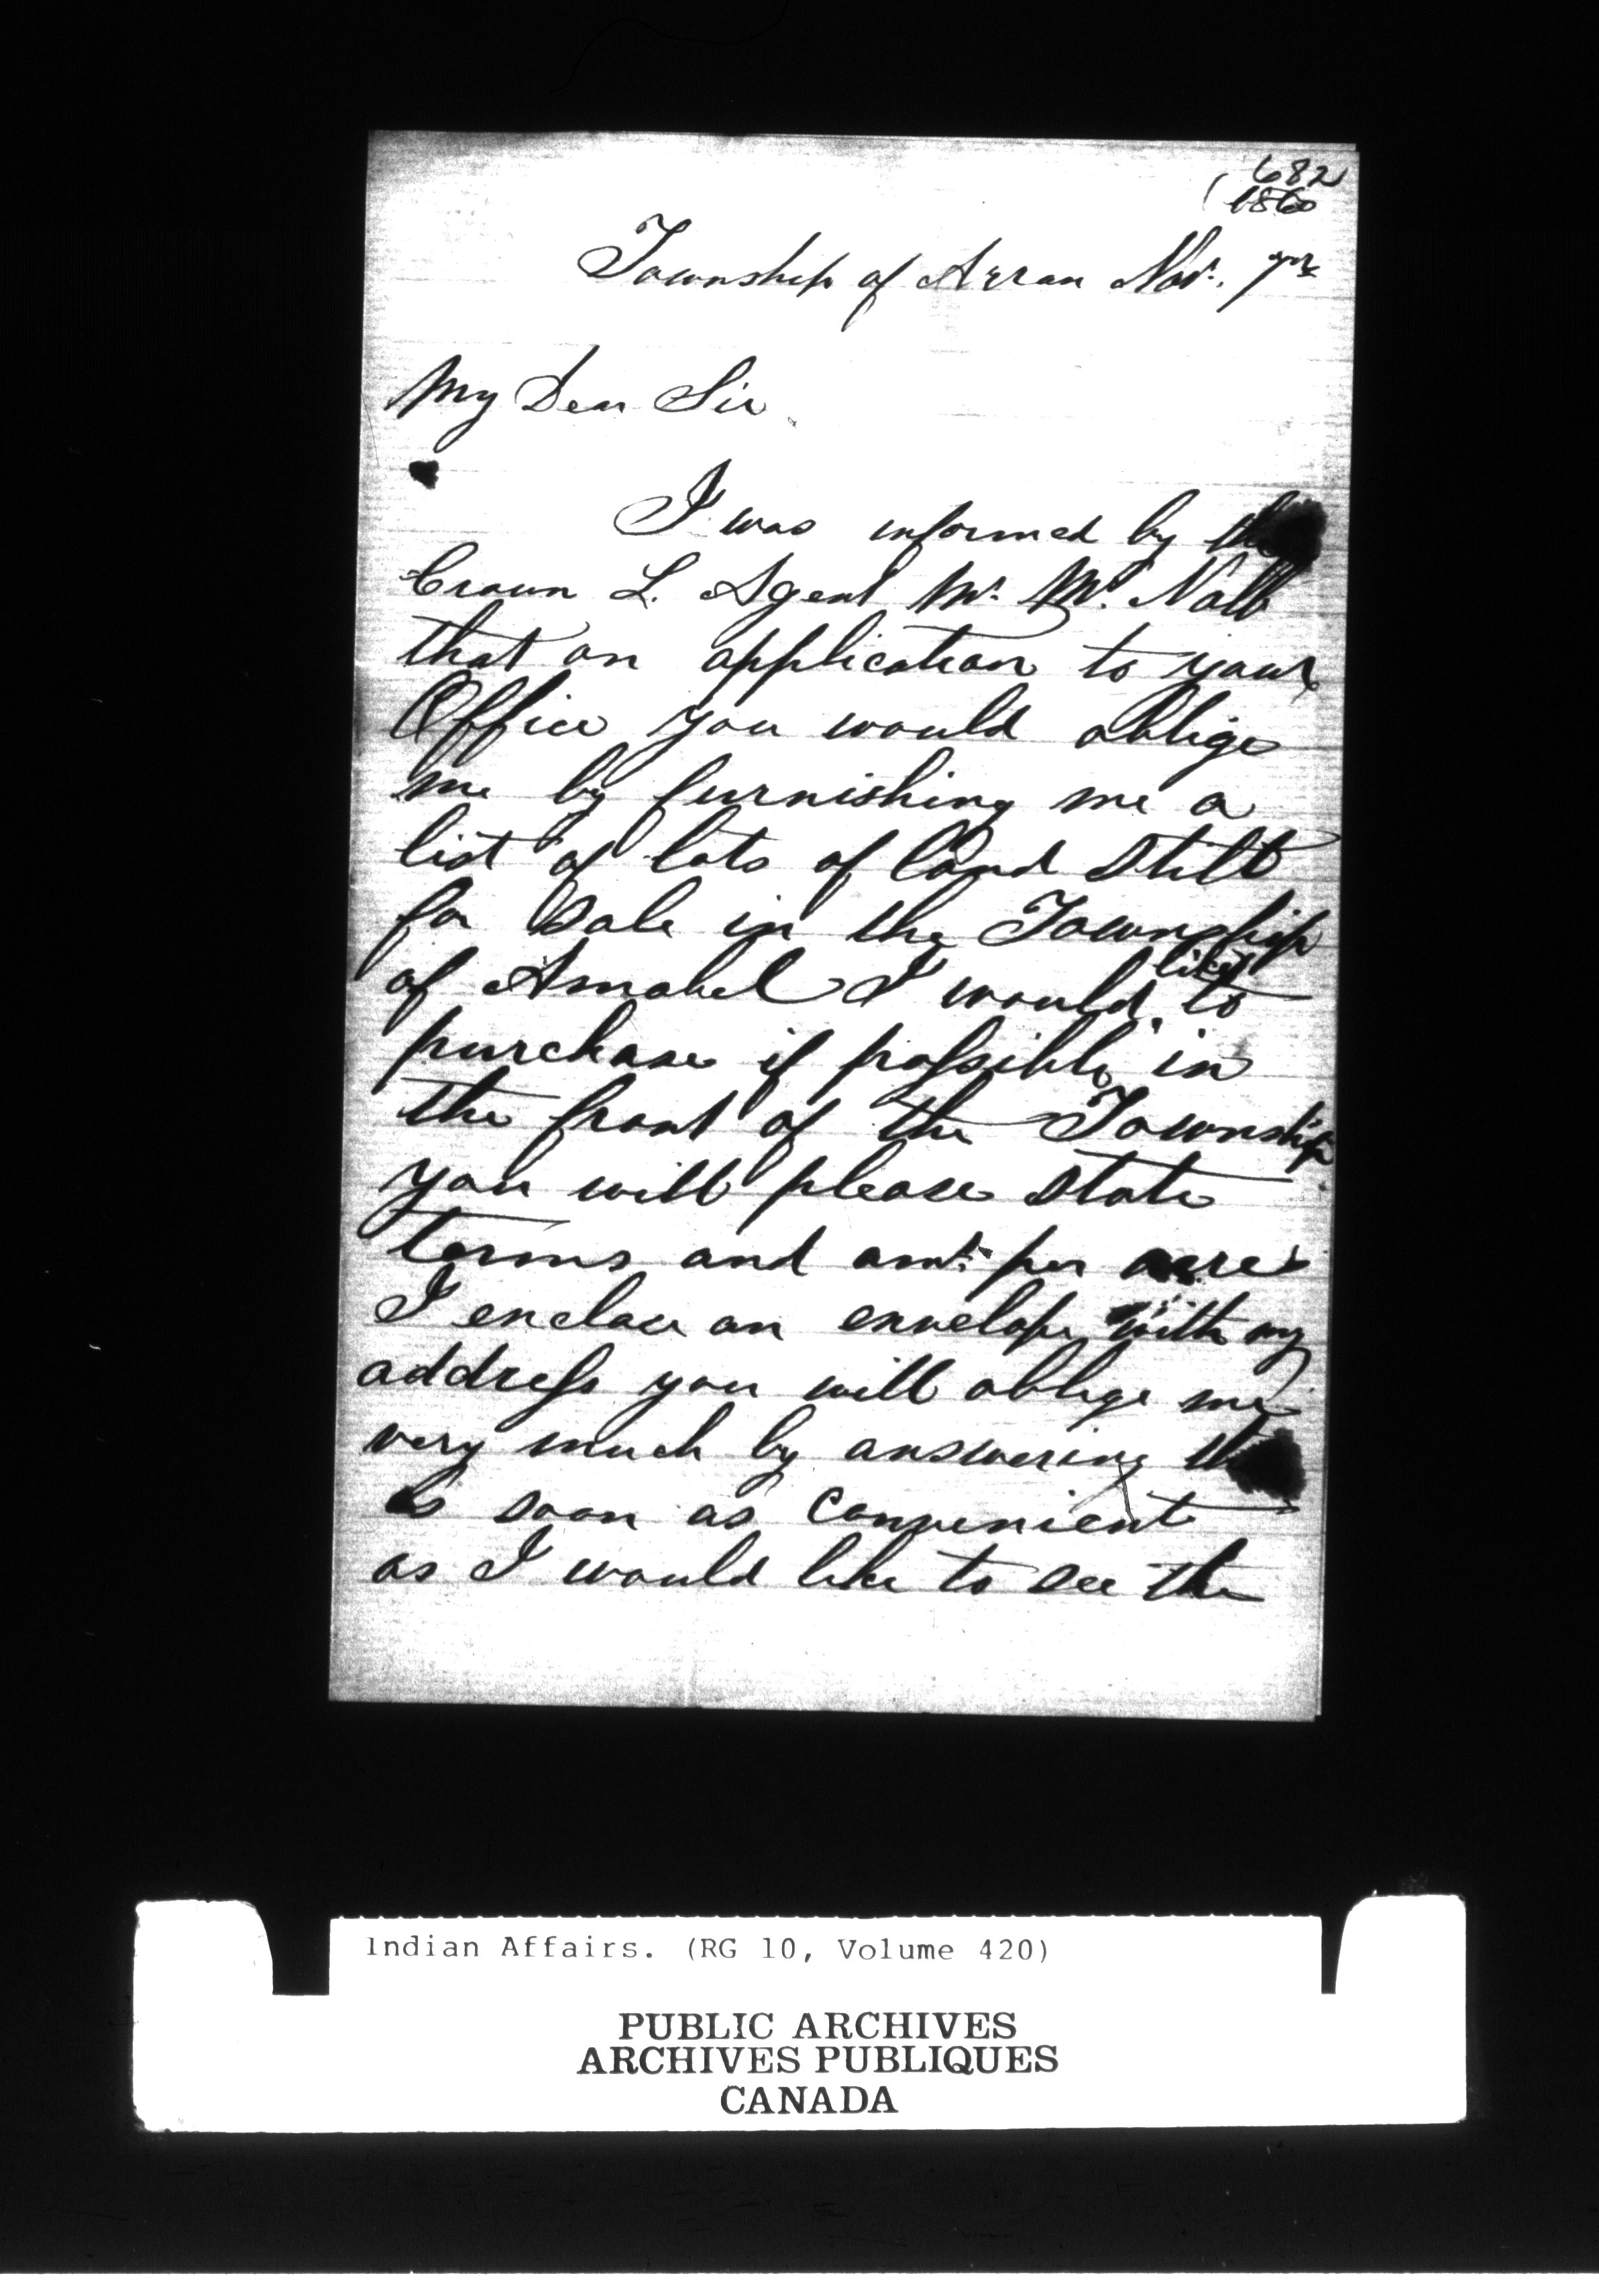 682
1860
Township of Arran Nov. 7th
My Dear Sir
I was informed by the
Crown L. Agent Mr. Mc. Nabb
that on application to your
Office you would oblige
me by furnishing me a
list of lots of land still
for Sale in the Township
like
of Amabel I would to
purchase if possible in
the front of the Township
you will please state
terms and amt. per acre
I enclose an envelope with my
address you will oblige me
very much by answering
as soon as convenient
as I would like to see the
Indian Affairs. (RG 10, Volume 420)
PUBLIC ARCHIVES
ARCHIVES PUBLIQUES
CANADA